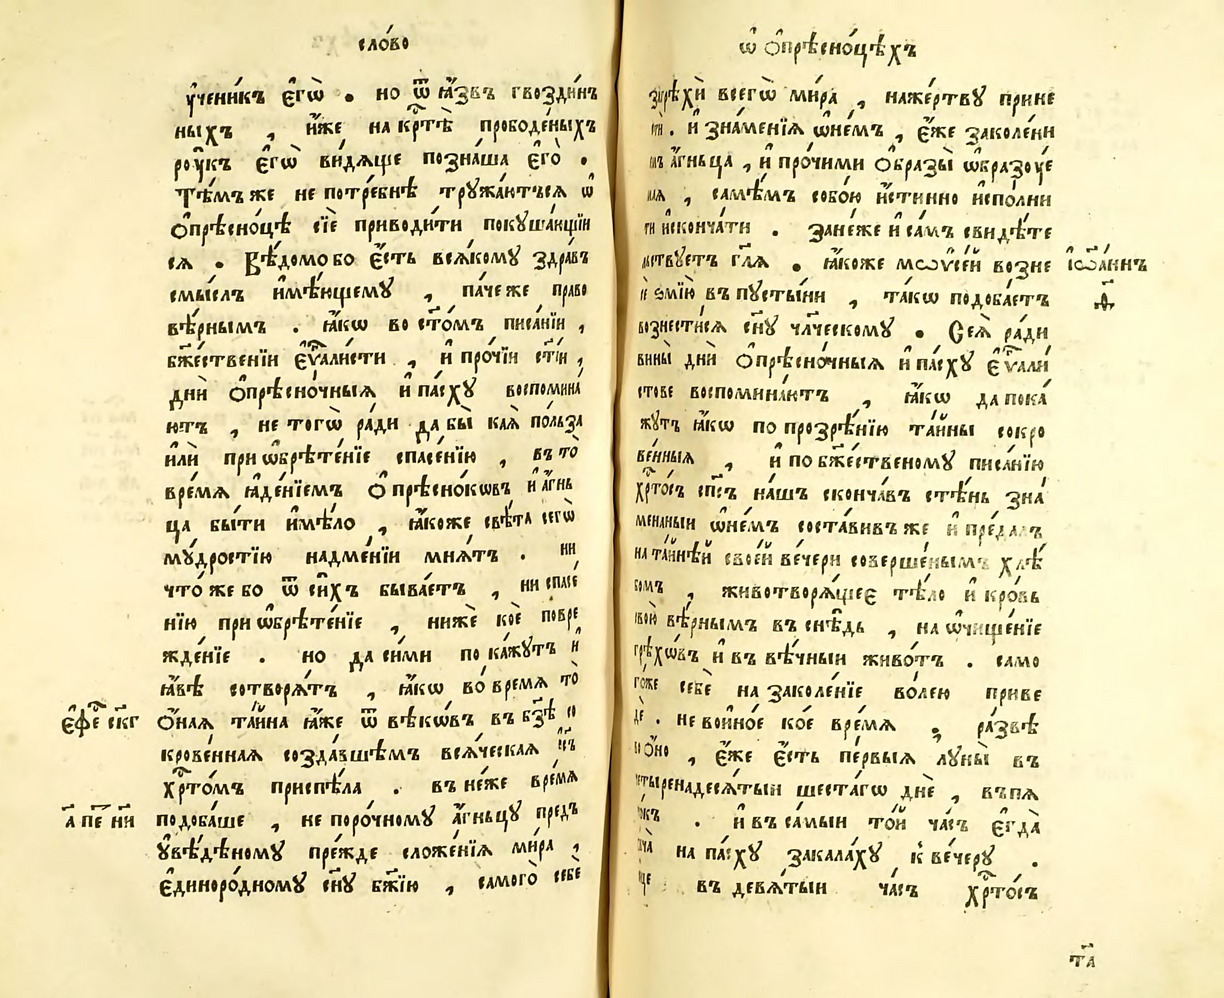 сло́во
ᲂу҆ченикъ є҆гѡ̀ . но ѿ ꙗ҆́звъ гвозди́н
ныхъ , и҆́же на кр҇тѣ̀ прободе́ныхъ
роу́къ є҆гѡ̀ ви́дѧще позна́ша є҆го̀ .
Тѣ́мъ же не потре́бнѣ тружа́ютъсѧ ѡ҆
ѻ҆прѣсно́цѣ сїѐ приводи́ти покуша́ющїи
сѧ . Вѣ́домо бо є҆́сть всѧ́кому здра́въ
смы́слъ и҆мѣ́ющему , па́че же право
вѣ́рнымъ . ꙗ҆́кѡ во ст҃о́мъ писа́нїи ,
бж҃е́ственїи є҆ѵⷢ҇али́сти , и҆ про́чїи ст҃і́и ,
дни̑ ѻ҆прѣсно́чныѧ и҆ па́сху воспомина́
ютъ , не тогѡ̀ ра́ди да бы̀ ка́ѧ по́льза
и҆лѝ при ѡ҆брѣте́нїе спасе́нїю , въ то̀
вре́мѧ ꙗ҆де́нїемъ ѻ҆прѣсно́кѡвъ и҆ а҆́гнь
ца бы́ти и҆мѣ́ло , ꙗ҆́коже свѣ́та сегѡ̀
му́дростїю надме́нїи мнѧ́тъ . ни
что́ же бо ѿ си́хъ быва́етъ , ни спасе́
нїю при ѡ҆брѣте́нїе , нижѐ ко́е повре
жде́нїе . но да си́ми пока́жутъ и҆
ꙗ҆́вѣ сотворѧ́тъ , ꙗ҆́кѡ во вре́мѧ то̀
Ѻ҆́наѧ та́йна ꙗ҆́же ѿ вѣ́кѡвъ въ бз҃ѣ со
є҆фе́ ск҃г
крове́ннаѧ созда́вшемъ всѧ́ческаѧ і҆с҃ъ
хр҇то́мъ приспѣ́ла . въ не́же вре́мѧ
подоба́ше , непоро́чному а҆́гньцу предъ
а҃ пе ни
ᲂу҆вѣ́дѣному пре́жде сложе́нїѧ ми́ра ,
є҆диноро́дному сн҃у бж҃їю , самого̀ себѐ
ѡ҆ ѻ҆прѣсно́цѣхъ
грѣхѝ всегѡ̀ ми́ра , на же́ртву прине
сти̑ . и҆ зна́менїѧ ѡ҆ не́мъ , є҆́же заколе́ни
мъ а҆́гньца , и҆ про́чими ѻ҆́бразы ѡ҆бразу́е
маѧ , самѣ́мъ собо́ю и҆́стинно и҆спо́лни
ти и҆ сконча́ти . Зане́же и҆ са́мъ свидѣ́те
льствуетъ гл҃ѧ . ꙗ҆́коже мѡѷсе́й возне
і҆ѡа́ннъ
сѐ ѕмі́ю въ пусты́ни , та́кѡ подоба́етъ
г҃
вознести́сѧ сн҃у чл҃ческому . Сеѧ̀ ра́ди
вины̀ дни̑ ѻ҆прѣсно́чныѧ и҆ па́сху є҆ѵⷢ҇али
стове воспомина́ютъ , ꙗ҆́кѡ да пока́
жутъ ꙗ҆́кѡ по прозрѣ́нїю та́йны сокро
ве́нныѧ , и҆ по бж҃е́ственому писа́нїю
хр҇то́съ сп҃съ на́шъ сконча́въ стѣ́нь зна́
менаныи ѡ҆ не́мъ соста́вивъ же и҆ преда́лъ
на та́йнѣй свое́й ве́чери соверше́нымъ хлѣ́
бомъ , животворѧ́щеє тѣ́ло и҆ кро́вь
свою̀ вѣ́рнымъ въ снѣ́дь , на ѡ҆чище́нїе
грѣхѡ́въ и҆ въ вѣ́чныи живо́тъ . само
го́же себѐ на заколе́нїе во́лею приве
дѐ . не во и҆но́е ко́е вре́мѧ , ра́звѣ
во ѻ҆́но , є҆́же є҆́сть пе́рвыѧ луны̀ въ
четыренадесѧ́тыи шеста́гѡ днѐ , въ пѧ
то́къ . и҆ въ са́мыи то́й ча́съ є҆гда̀
ѻ҆бы́ча на па́сху закала́ху к̾ ве́черу .
въ девѧ́тыи ча́съ хр҇то́съ
т҃а